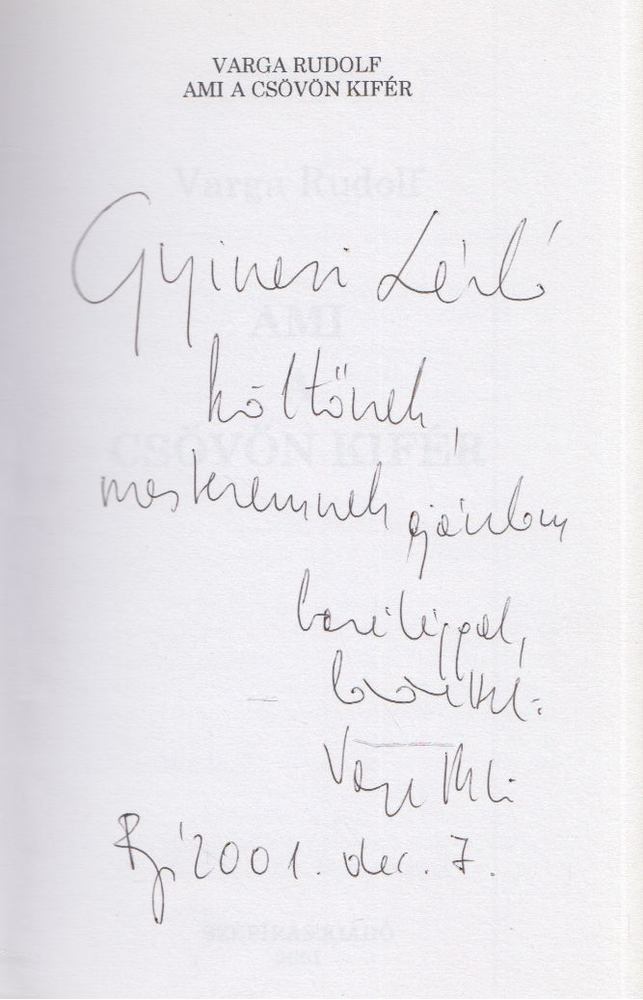 VARGA RUDOLF
AMI A CSÖVÖN KIFÉR
Varga Rudolf
Gyimesi László
AMI
költőnek,
CSÖVÖN KIFÉR
mesteremnek ajánlom
barátsággal,
Varga Rudi
2001. dec. 7.
SZÉPÍRÁS KIADÓ
2001